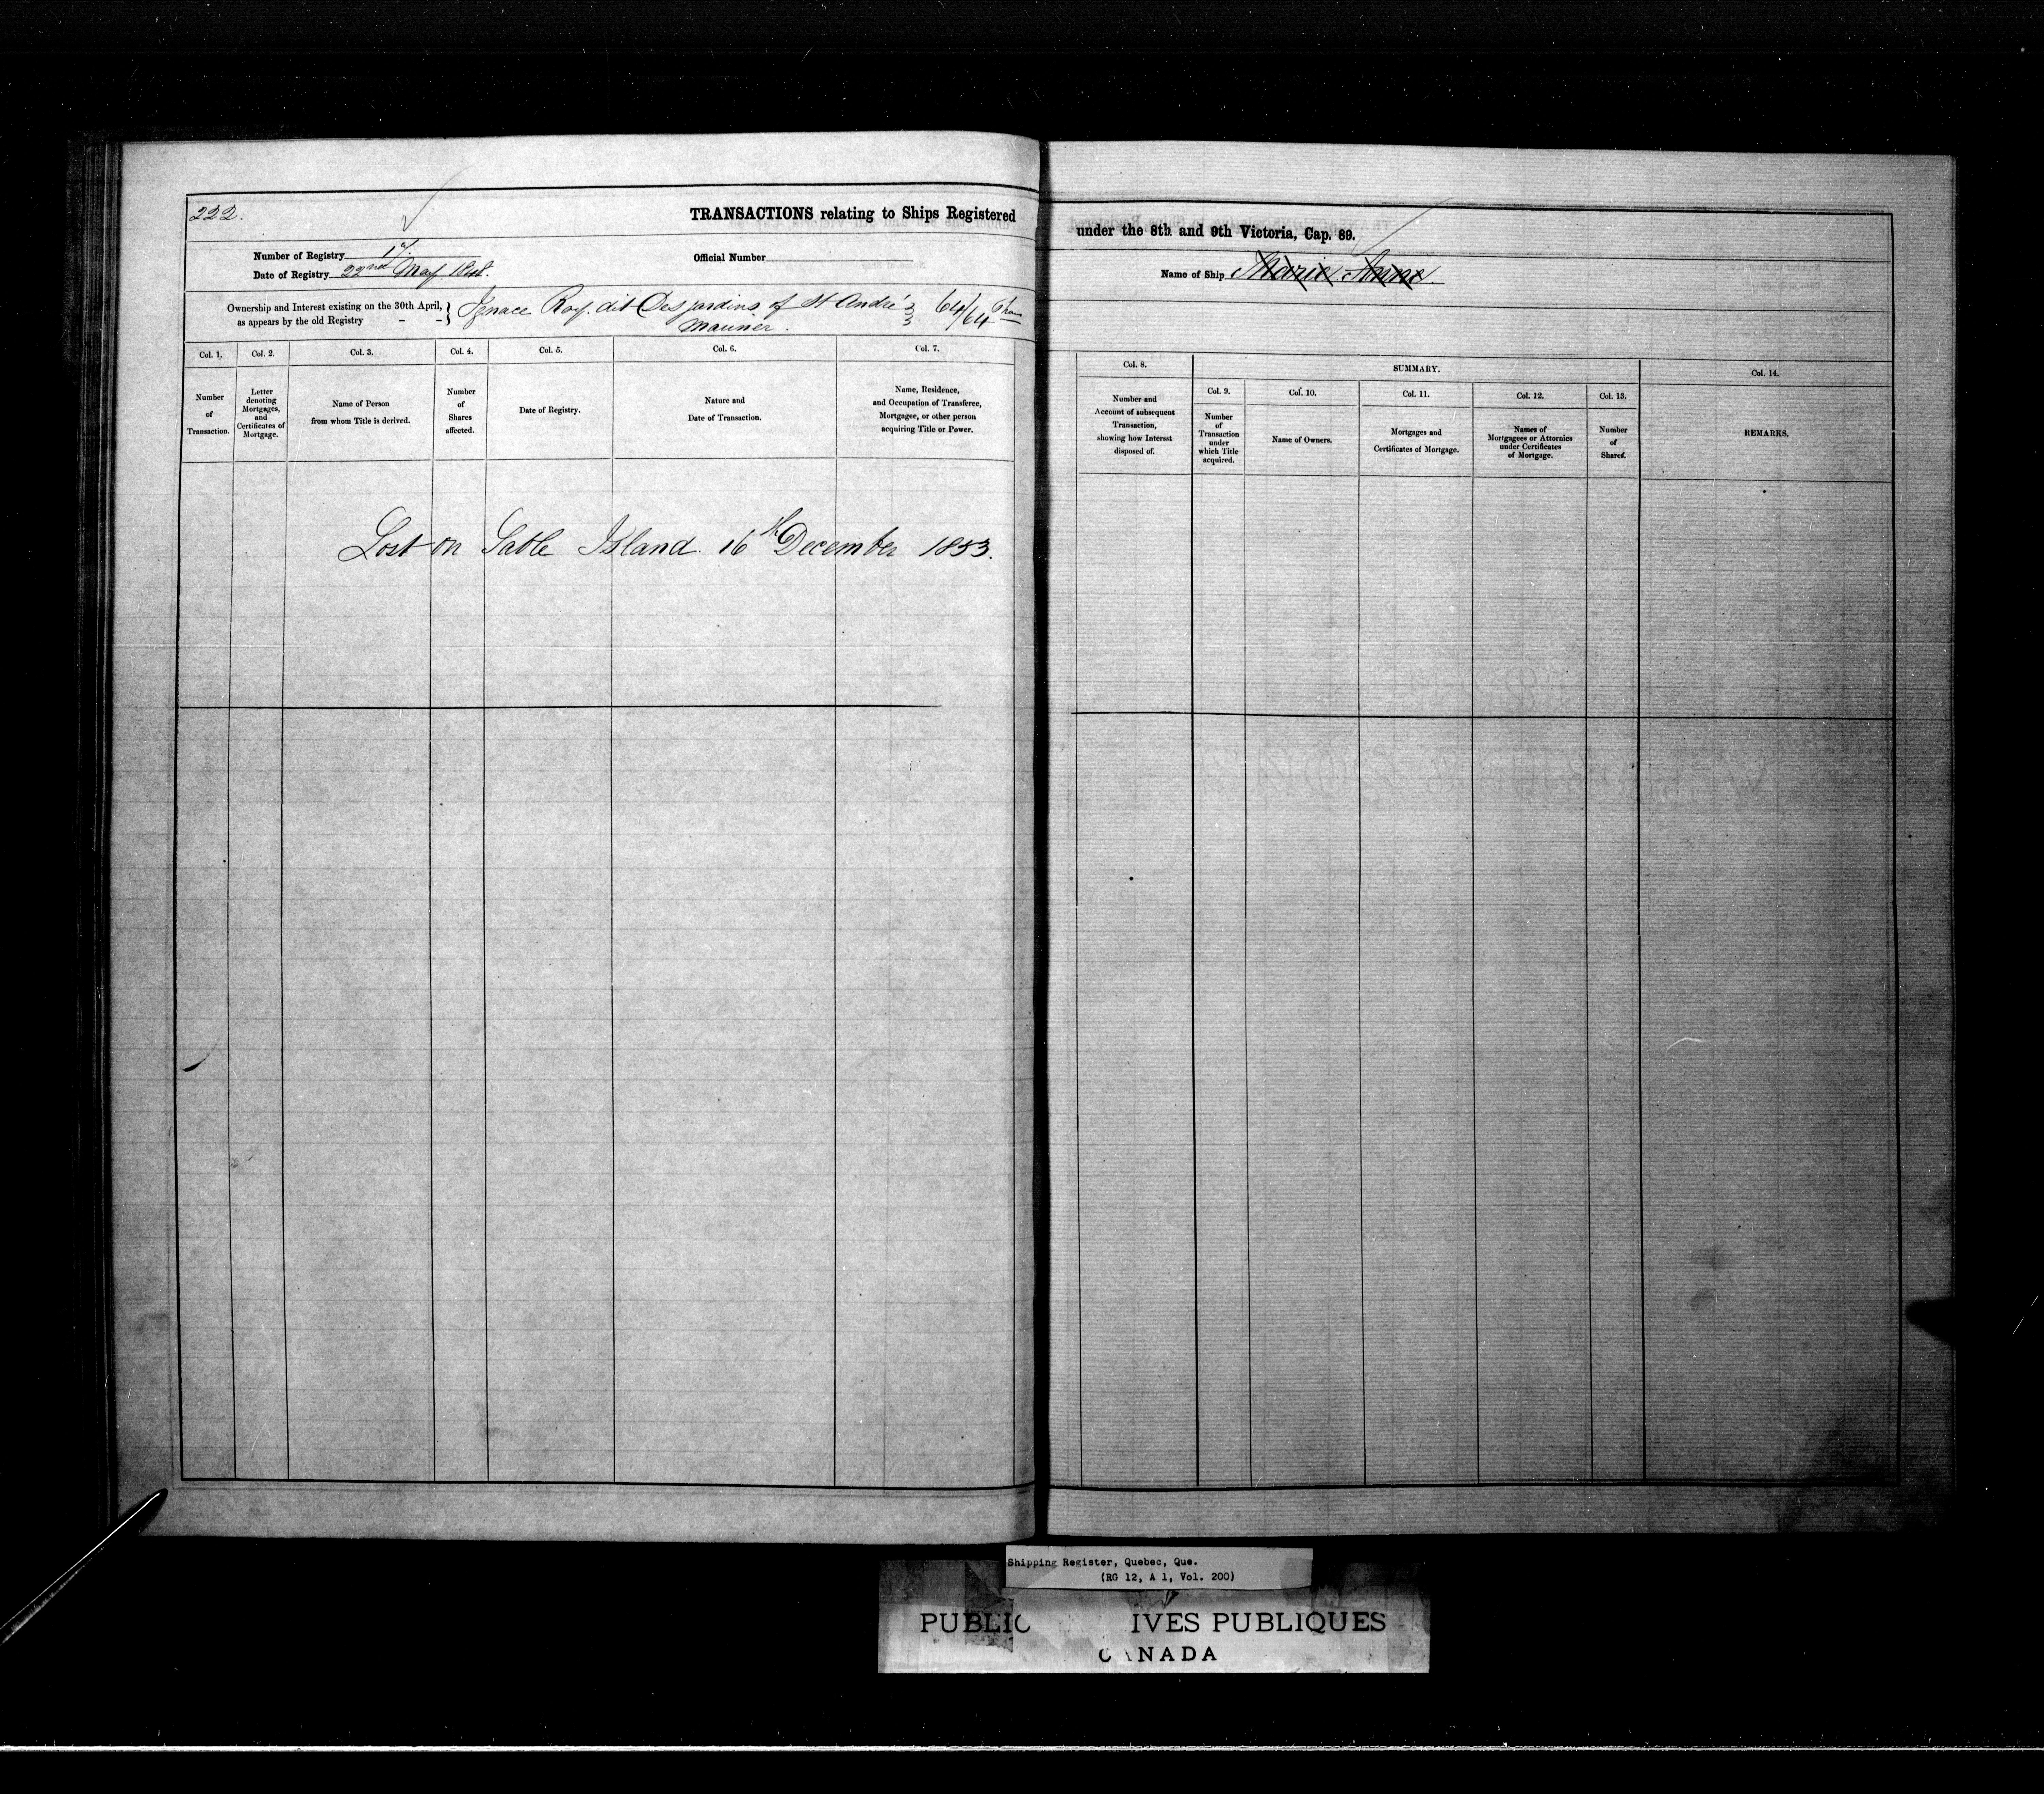 222.
TRANSACTIONS relating to Ships Registered
under the 8th and 9th Victoria, Cap. 89.
Number of Registry 17.
Date of Registry 22nd May
Official Number
Name of Ship Marie Anne.
Ownership and Interest existing on the 30th April,
as appears by the old Registry - -
Ignace Roy. dit Desjardins of St André
Mariner.
64/64
Col. 1.
Number
of
Transaction.
Col. 2.
Letter
denoting
Mortgages,
and
Certificates of
Mortgage.
Col. 3.
Name of Person
from whom Title is derived.
Col. 4.
Number
of
Shares
affected.
Col. 5.
Date of Registry.
Col. 6.
Nature and
Date of Transaction.
Col. 7.
Name, Residence,
and Occupation of Transferee,
Mortgagee, or other person
acquiring Title or Power.
Col. 8.
Number and
Account of subsequent
Transaction,
showing how Interest
disposed of.
SUMMARY.
Col. 9.
Number
of
Transaction
under
which Title
acquired.
Col. 10.
Name of Owners.
Col. 11.
Mortgages and
Certificates of Mortgage.
Col. 12.
Names of
Mortgagees or Attornies
under Certificates
of Mortgage.
Col. 13.
Number
of
Shares.
Col. 14.
REMARKS.
Lost on Sable Island. 16th December 1853.
Shipping Register, Quebec, Que.
(RG 12, A 1, Vol. 200)
PUBLIC IVES PUBLIQUES
CANADA